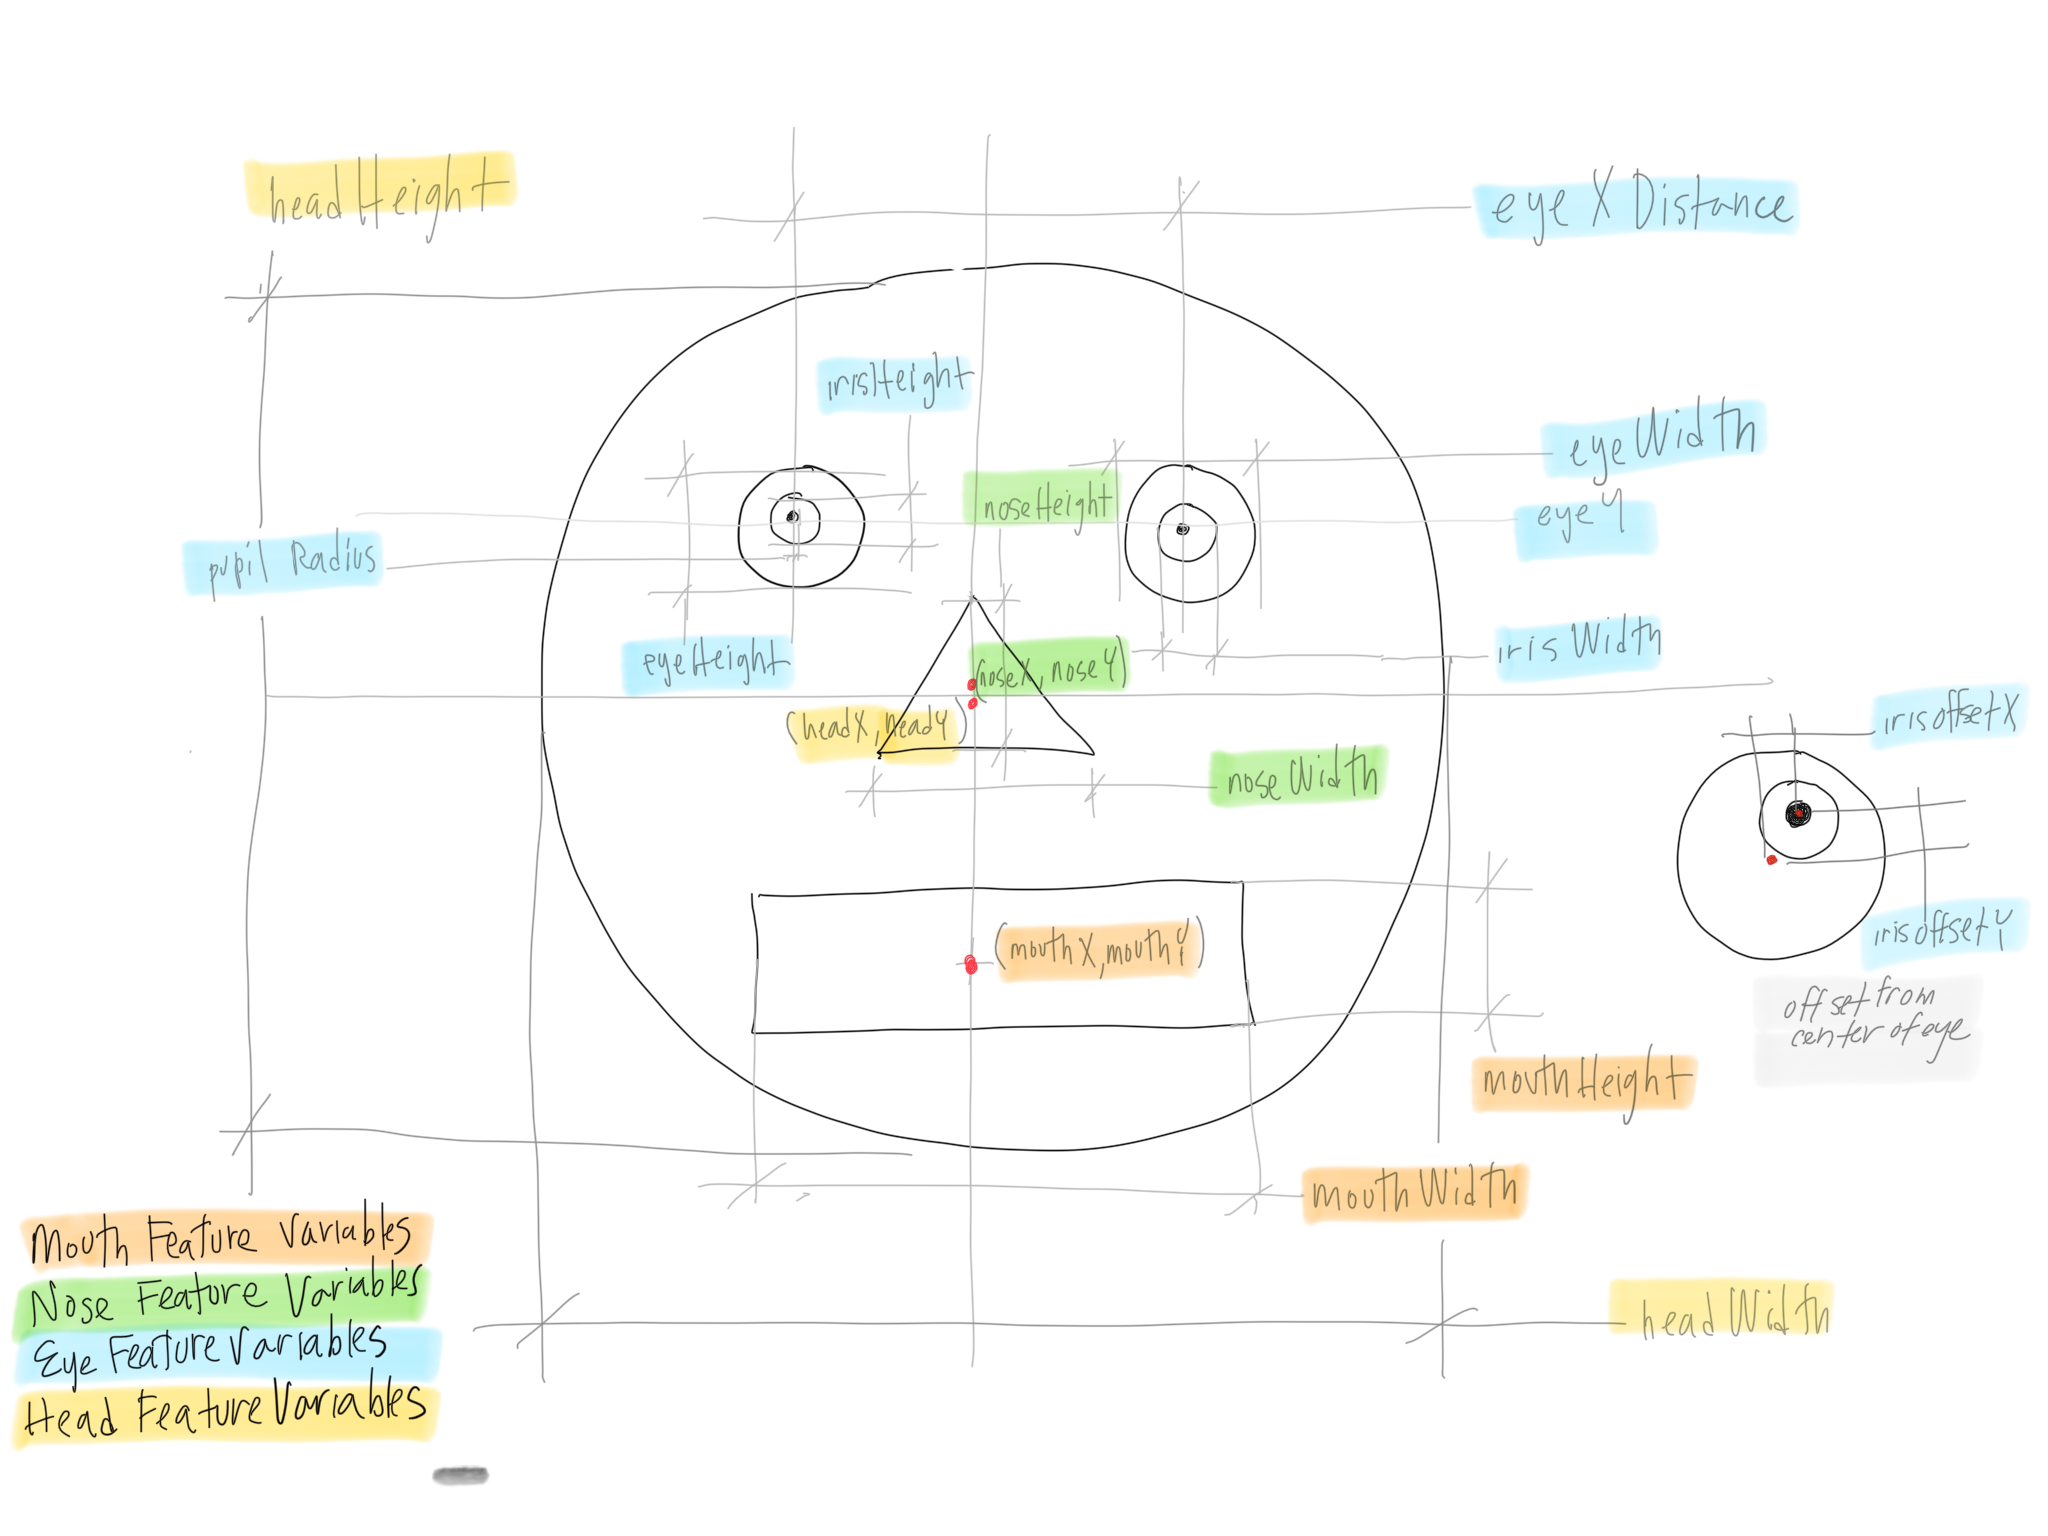 headHeight
eye X Distance
irisHeight
eyeWidth
noseHeight
eye Y
pupil Radius
eyeHeight
(noseX, noseY)
iris Width
(headX, headY)
nose Width
irisoffsetX
irisoffsetY
offset from
center of eye
(mouthX, mouthY)
mouthHeight
mouthWidth
headWidth
Mouth Feature Variables
Nose Feature Variables
Eye Feature Variables
Head Feature Variables